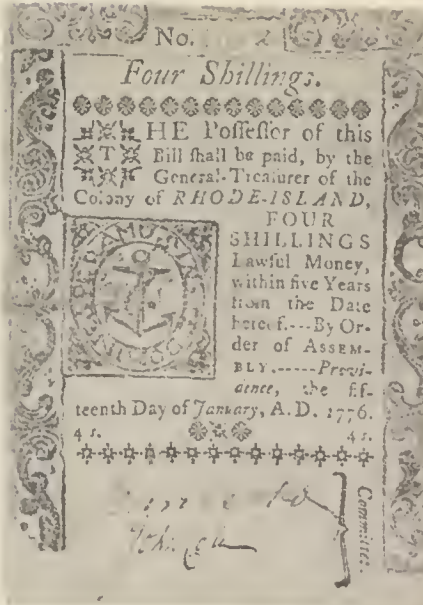 No. 2
Four Shillings.
THE Poſſeſſor of this
Bill ſhall be paid, by the
General-Treaſurer of the
Colony of RHODE-ISLAND,
FOUR
SHILLINGS
Lawful Money,
within five Years
from the Date
hereof.---By Or-
der of ASSEM-
BLY.-----Provi-
dence, the fif-
teenth Day of January, A.D. 1776.
4 s. 4 s.
Committee.